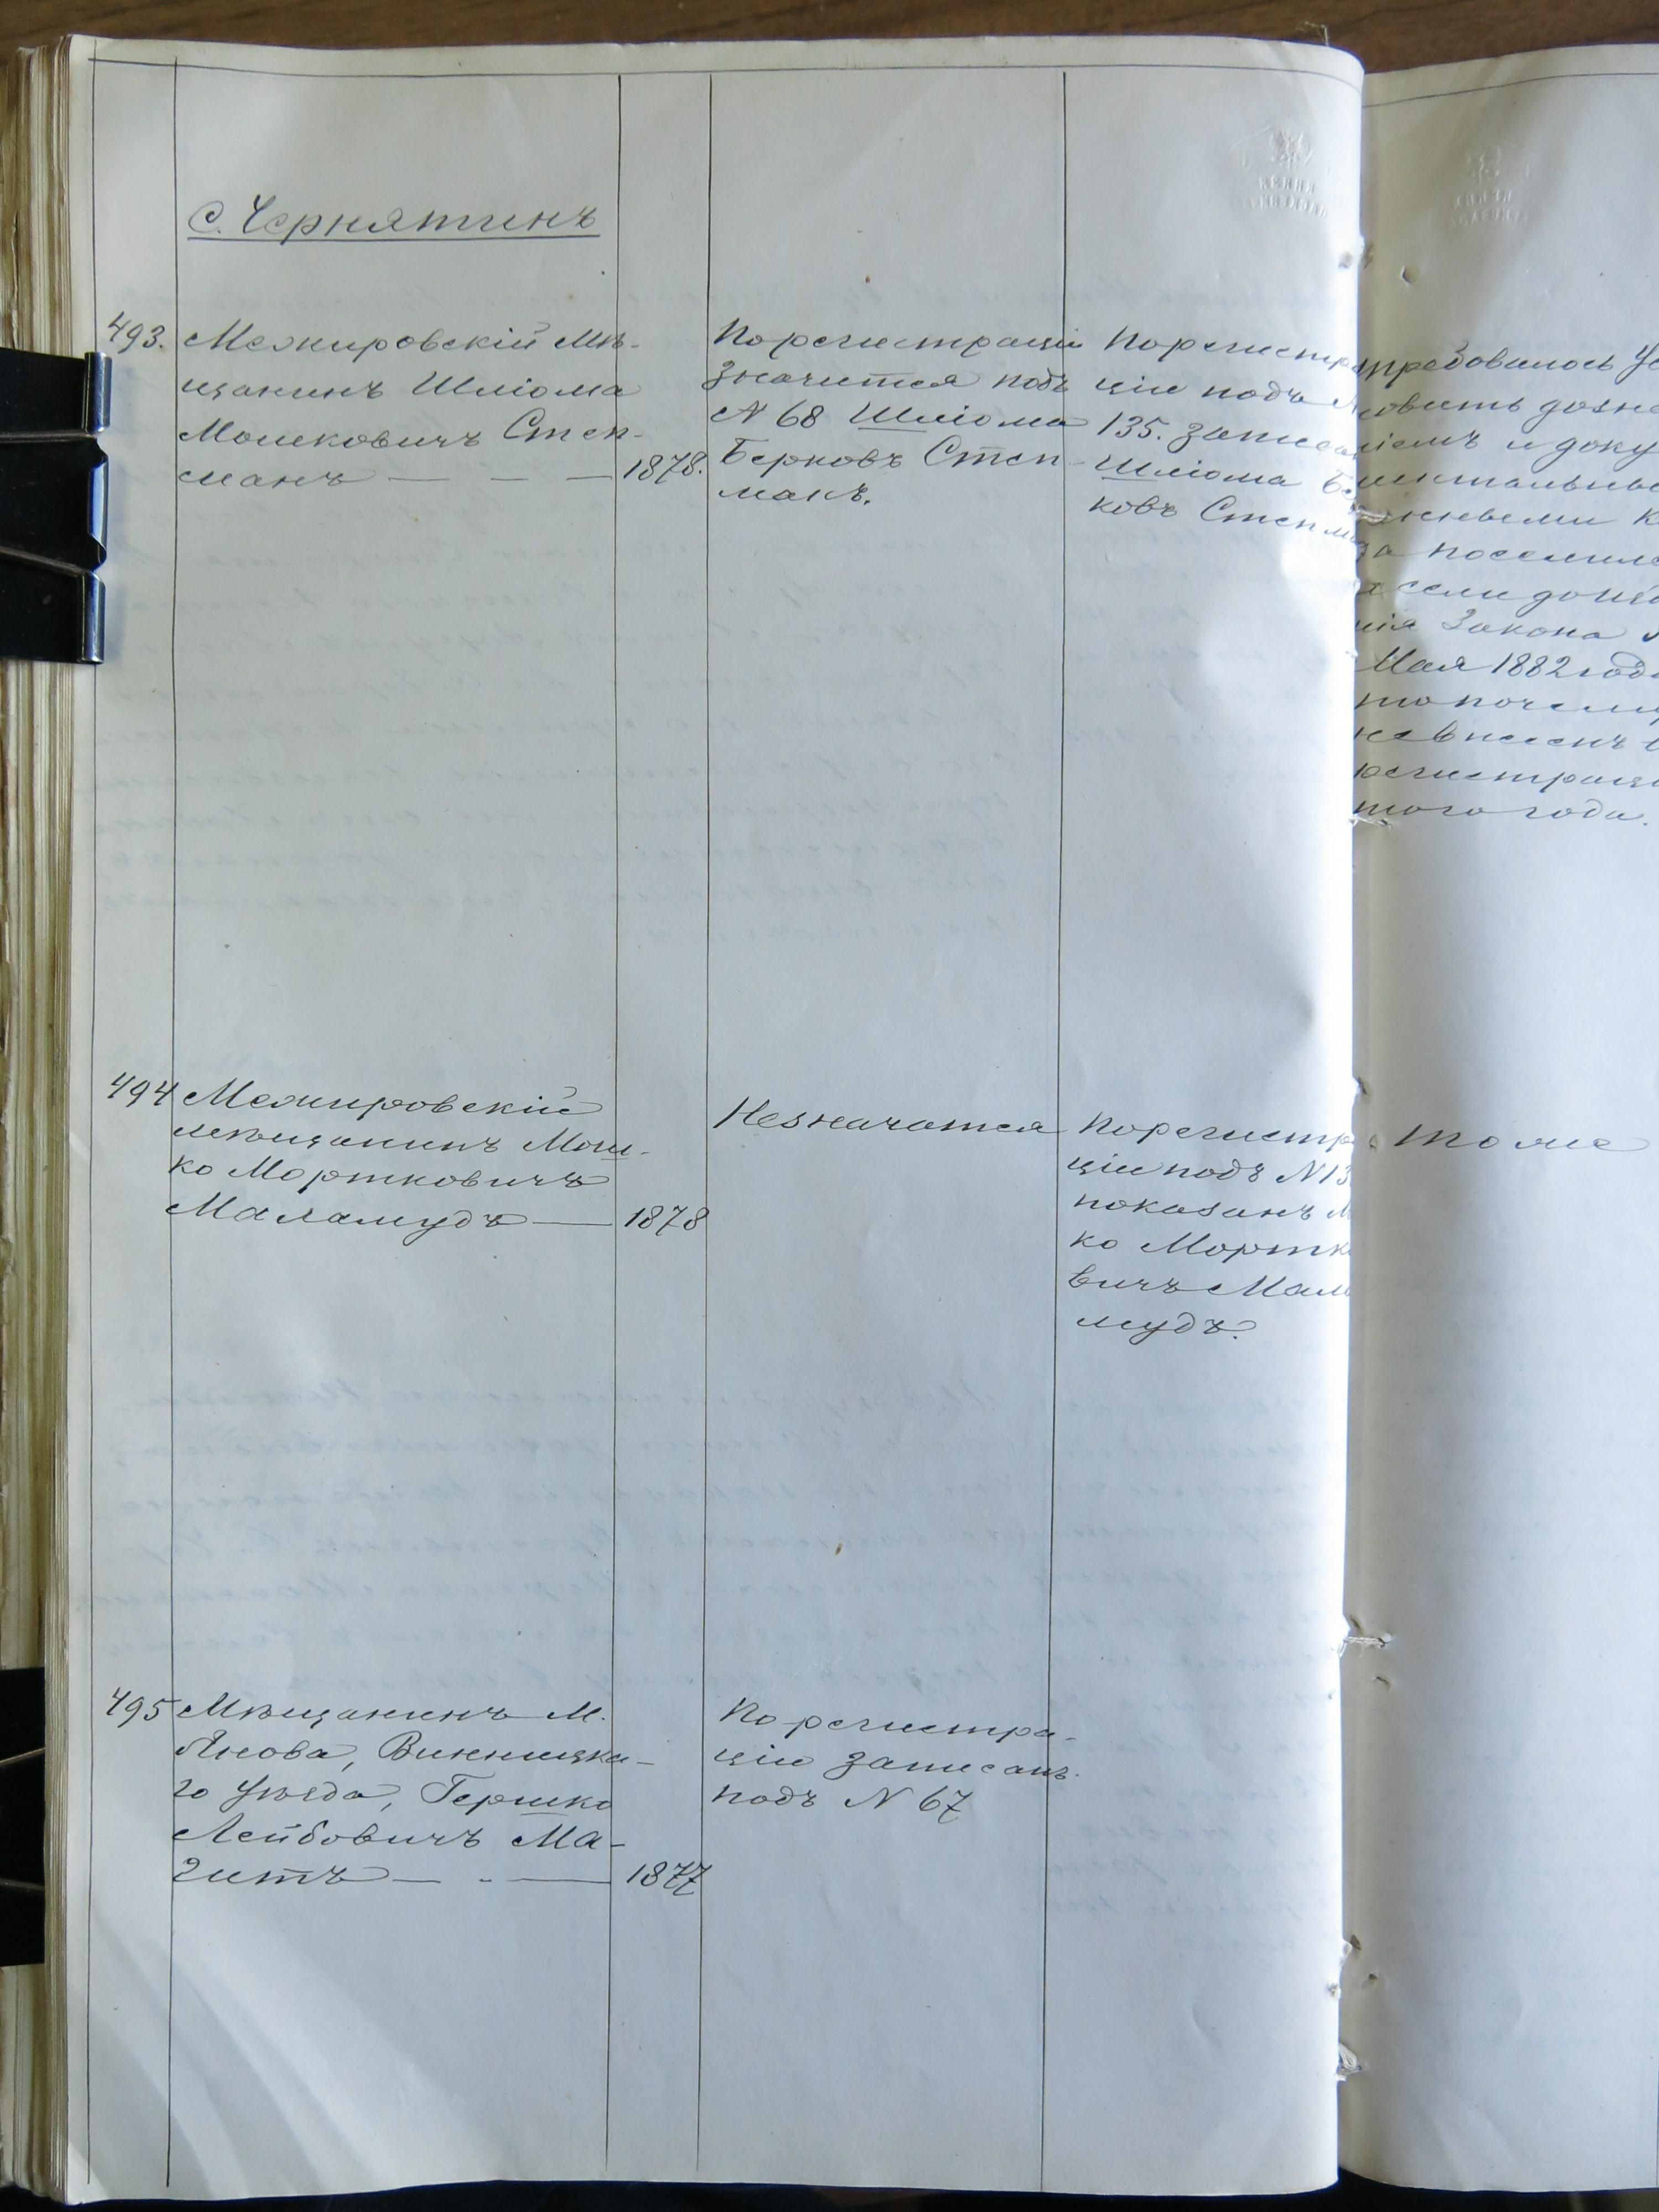 с. Чернятинъ
493.
Межировскій мѣ-
щанинъ Шліома
Мошковичъ Степ-
манъ — — — 1878.
По регистраціи
значится подъ
№ 68 Шліома
Берковъ Степ-
манъ.
По регистра
ціи подъ №
135. записа
Шліома Бе
ковъ Степма
требовалось
довать дозна
ніемъ и доку
ментальными
данными к
да поселил
а если до из
нія Закона
Мая 1882 года
то почему
не внесенъ
регистрац
того года.
494
Межировскій
мѣщанинъ Мош-
ко Мортковичъ
Маламудъ — 1878
Не значится
По регистр
ціи подъ № 13
показанъ М
ко Мортк
вичъ Мала
мудъ.
тоже
495
Мѣщанинъ м.
Янова, Винницка-
го уѣзда, Гершко
Лейбовичъ Ма-
гитъ — - — 1877
По регистра-
ціи записанъ
подъ № 67